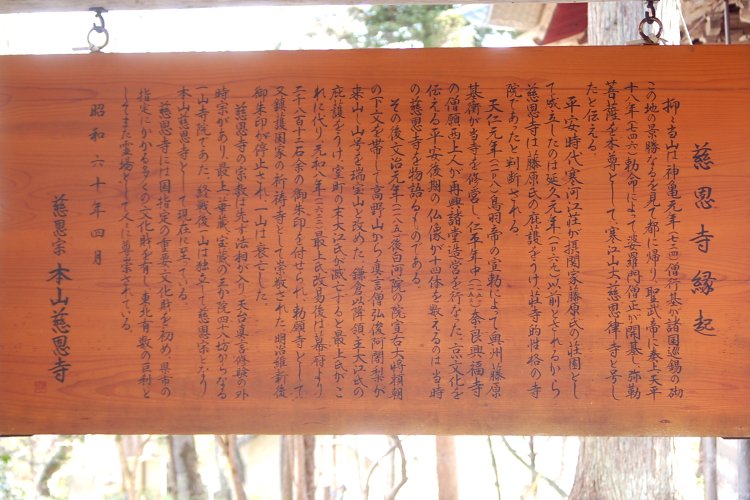 慈恩寺縁起
抑々当山は神亀元年(七二四)僧行基が諸国巡錫の砌
この地の景勝なるを見て都に帰り聖武帝に奏上天平
十八年(七四六)勅命によって婆羅門僧正が開基し弥勒
菩薩を本尊として、寒江山大慈恩律寺と号し
たと伝える。
平安時代、寒河江荘が摂関家藤原氏の荘園とし
て成立したのは延久元年(一〇六九)以前とされるから
慈恩寺は藤原氏の庇護をうけ荘寺的性格の寺
院であったと判断される。
天仁元年(一一〇八)鳥羽帝の宣勅によって奥州藤原
基衡が当寺を修営し仁平年中(一一五三)奈良興福寺
の僧願西上人が再興諸堂造営を行なった。京文化を
伝える平安後期の仏像が十四体を数えるのは当時
の慈恩寺を物語るものである。
その後文治元年(一一八五)後白河院の院宣右大将頼朝
の下文を帯して高野山から真言僧弘俊阿闍梨が
来山し山号を瑞宝山と改めた。鎌倉以降領主大江氏の
庇護をうけ、室町の末大江氏が滅亡すると最上氏がこ
れに代り、元和八年(一六二二)最上氏改易後は幕府より
二千八百十二石余の御朱印を付せられ、勅願寺として
又鎮護国家の祈祷寺として崇敬された。明治維新後
御朱印が停止され、一山は衰亡した。
慈恩寺の宗教は先ず法相が入り天台真言修験の外
時宗があり、最上、華蔵、宝蔵の三か院四十八坊からなる
一山寺院であった。終戦後一山は独立して慈恩宗となり
本山慈恩寺として現在に至っている。
慈恩寺には国指定の重要文化財を初め、県市の
指定にかかる多くの文化財を有し、東北有数の巨刹と
してまた霊場として人々に尊崇されている。
昭和六十年四月
慈恩宗 本山慈恩寺